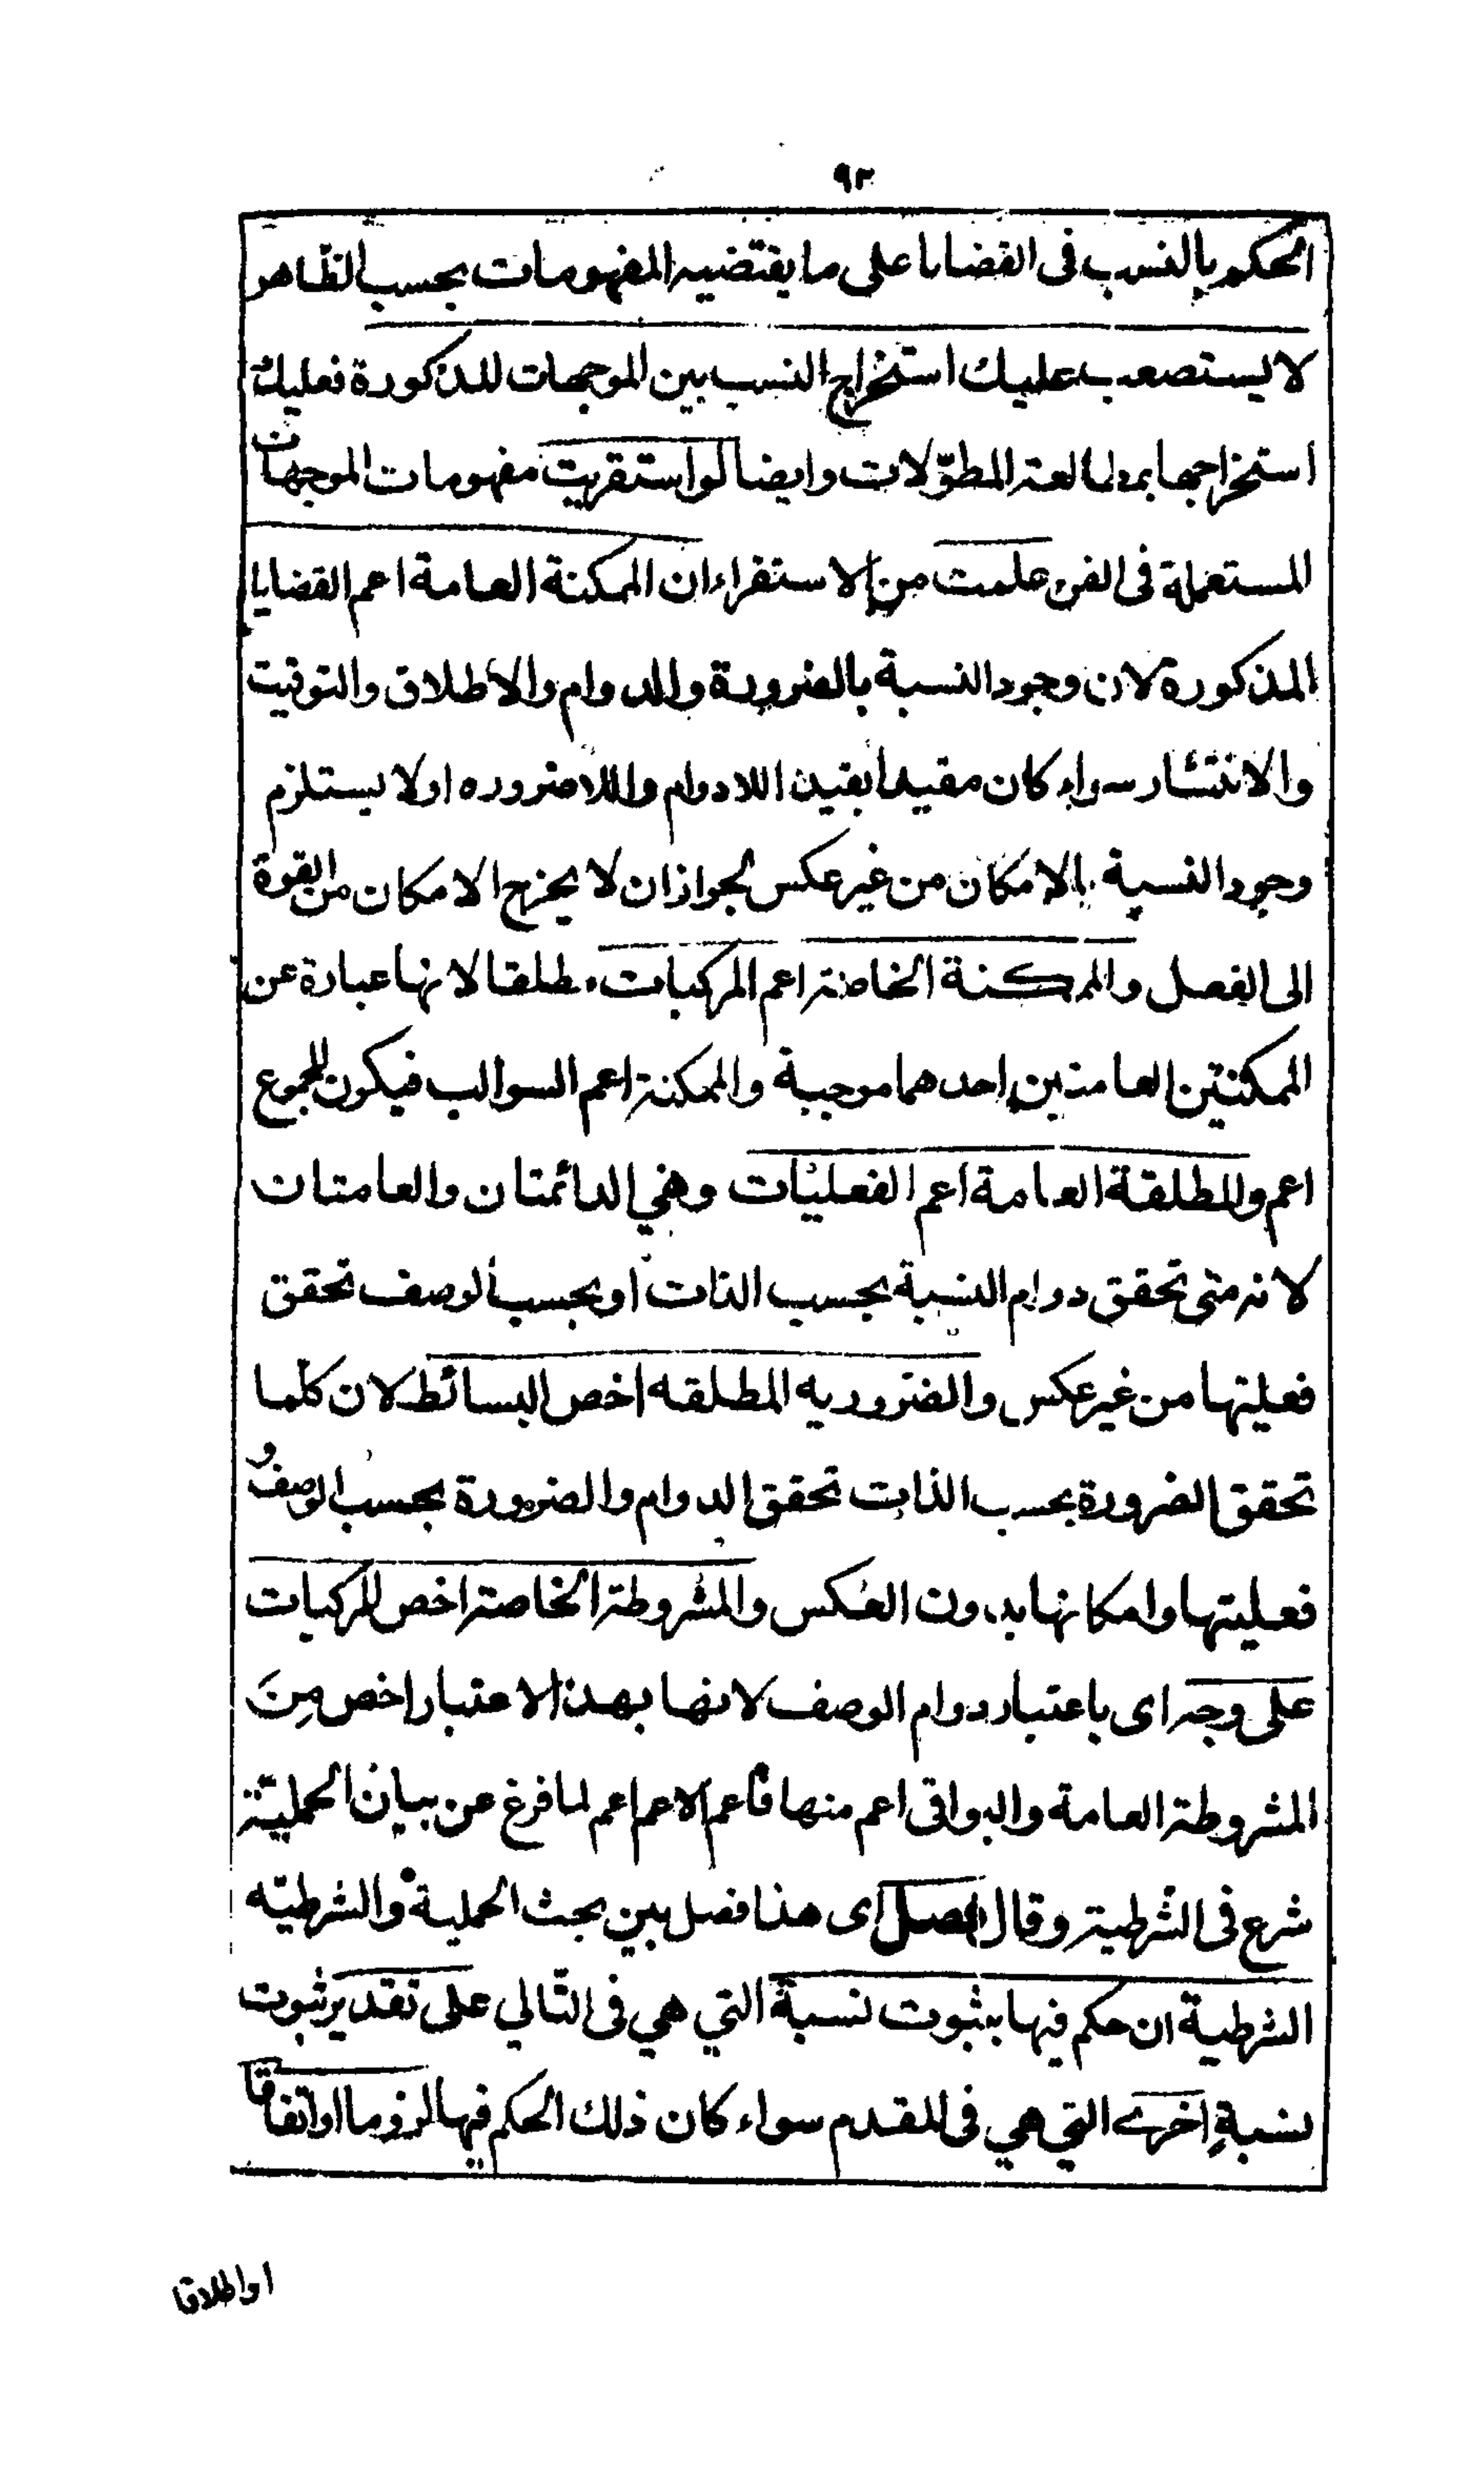 ٩٣
الحكم بالنسب فى القضايا على ما يقتضيه المفهومات بحسب الظاهر
لا يستصعب عليك استخراج النسب بين الموجهات المذكورة فعليك
استخراجها بمطالعة المطوّلات وايضا لو استقريت مفهومات الموجهات
المستعملة فى الفن علمت من الاستقراء ان الممكنة العامة اعم القضايا
المذكورة لان وجود النسبة بالضرورة والدوام والاطلاق والتوقيت
والانتشار سواء كان مقيدا بقيد اللادوام واللاضروره اولا يستلزم
وجود النسبة بالامكان من غير عكس لجواز ان لا يخرج الامكان من القوة
الى الفصل والممكنة الخاصة اعم المركبات مطلقا لانها عبارة عن
الممكنتين العامتين احدهما موجبة والممكنة اعم السوالب فيكون المجموع
اعم والمطلقة العامة اعم الفعليات وهي الدائمتان والعامتان
لانه متى تحقق دوام النسبة بحسب الذات او بحسب الوصف تحقق
فعليتها من غير عكس والضروريه المطلقه اخص البسائط لان كلّما
تحقق الضرورة بحسب الذات تحقق الدوام والضرورة بحسب الوصف و
فعليتها وامكانها بدون العكس والمشروطة الخاصة اخص المركبات
على وجه اى باعتبار دوام الوصف لانها بهذا الاعتبار اخص مِنَ
المشروطة العامة والبواقى اعم منها فاعم الاعم اعم لما فرغ عن بيان الحمليّة
شرع فى الشرطية وقال فصل اى هذا فصل بين بحث الحملية والشرطيّه
الشرطية ان حكم فيها بثبوت نسبة التي هي فى التّالي على تقدير ثبوت
نسبةٍ اخرى التي هي فى المقدم سواء كان ذلك الحكم فيها لزوما او اتفاقا
او اطلاقا